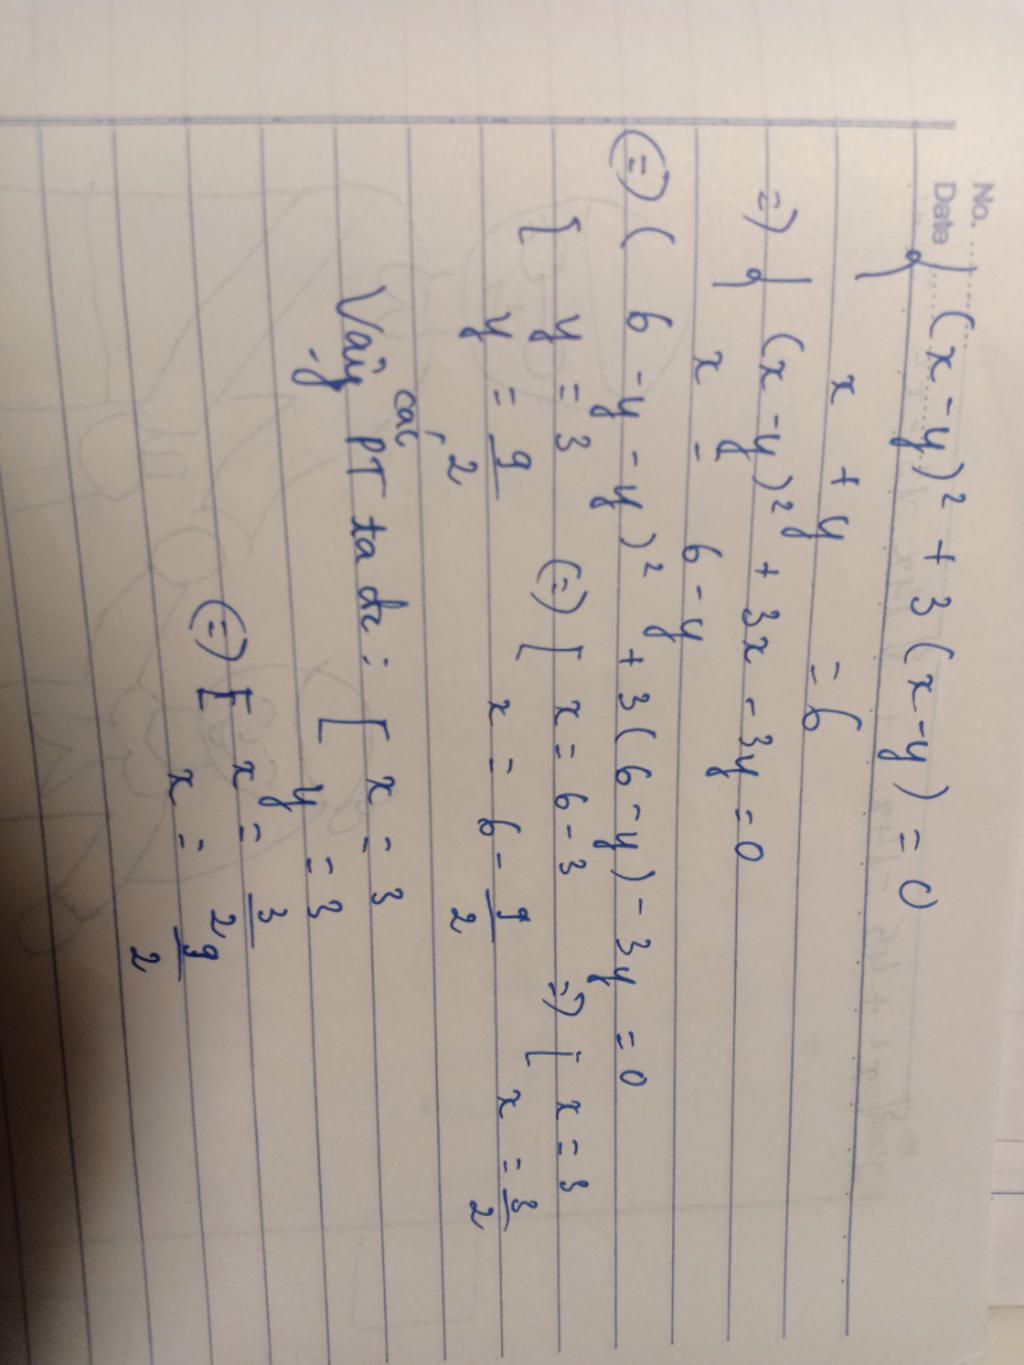 No.
Date
{ (x - y)² + 3(x - y) = 0
x + y = 6
=> { (x - y)² + 3x - 3y = 0
x = 6 - y
<=> (6 - y - y)² + 3(6 - y) - 3y = 0
[ y = 3 <=> [ x = 6 - 3 => [ x = 3
y = 9/2 x = 6 - 9/2 x = 3/2
Vậy các PT ta đc: [ x = 3
y = 3
<=> [ x = 3/2
x = 9/2